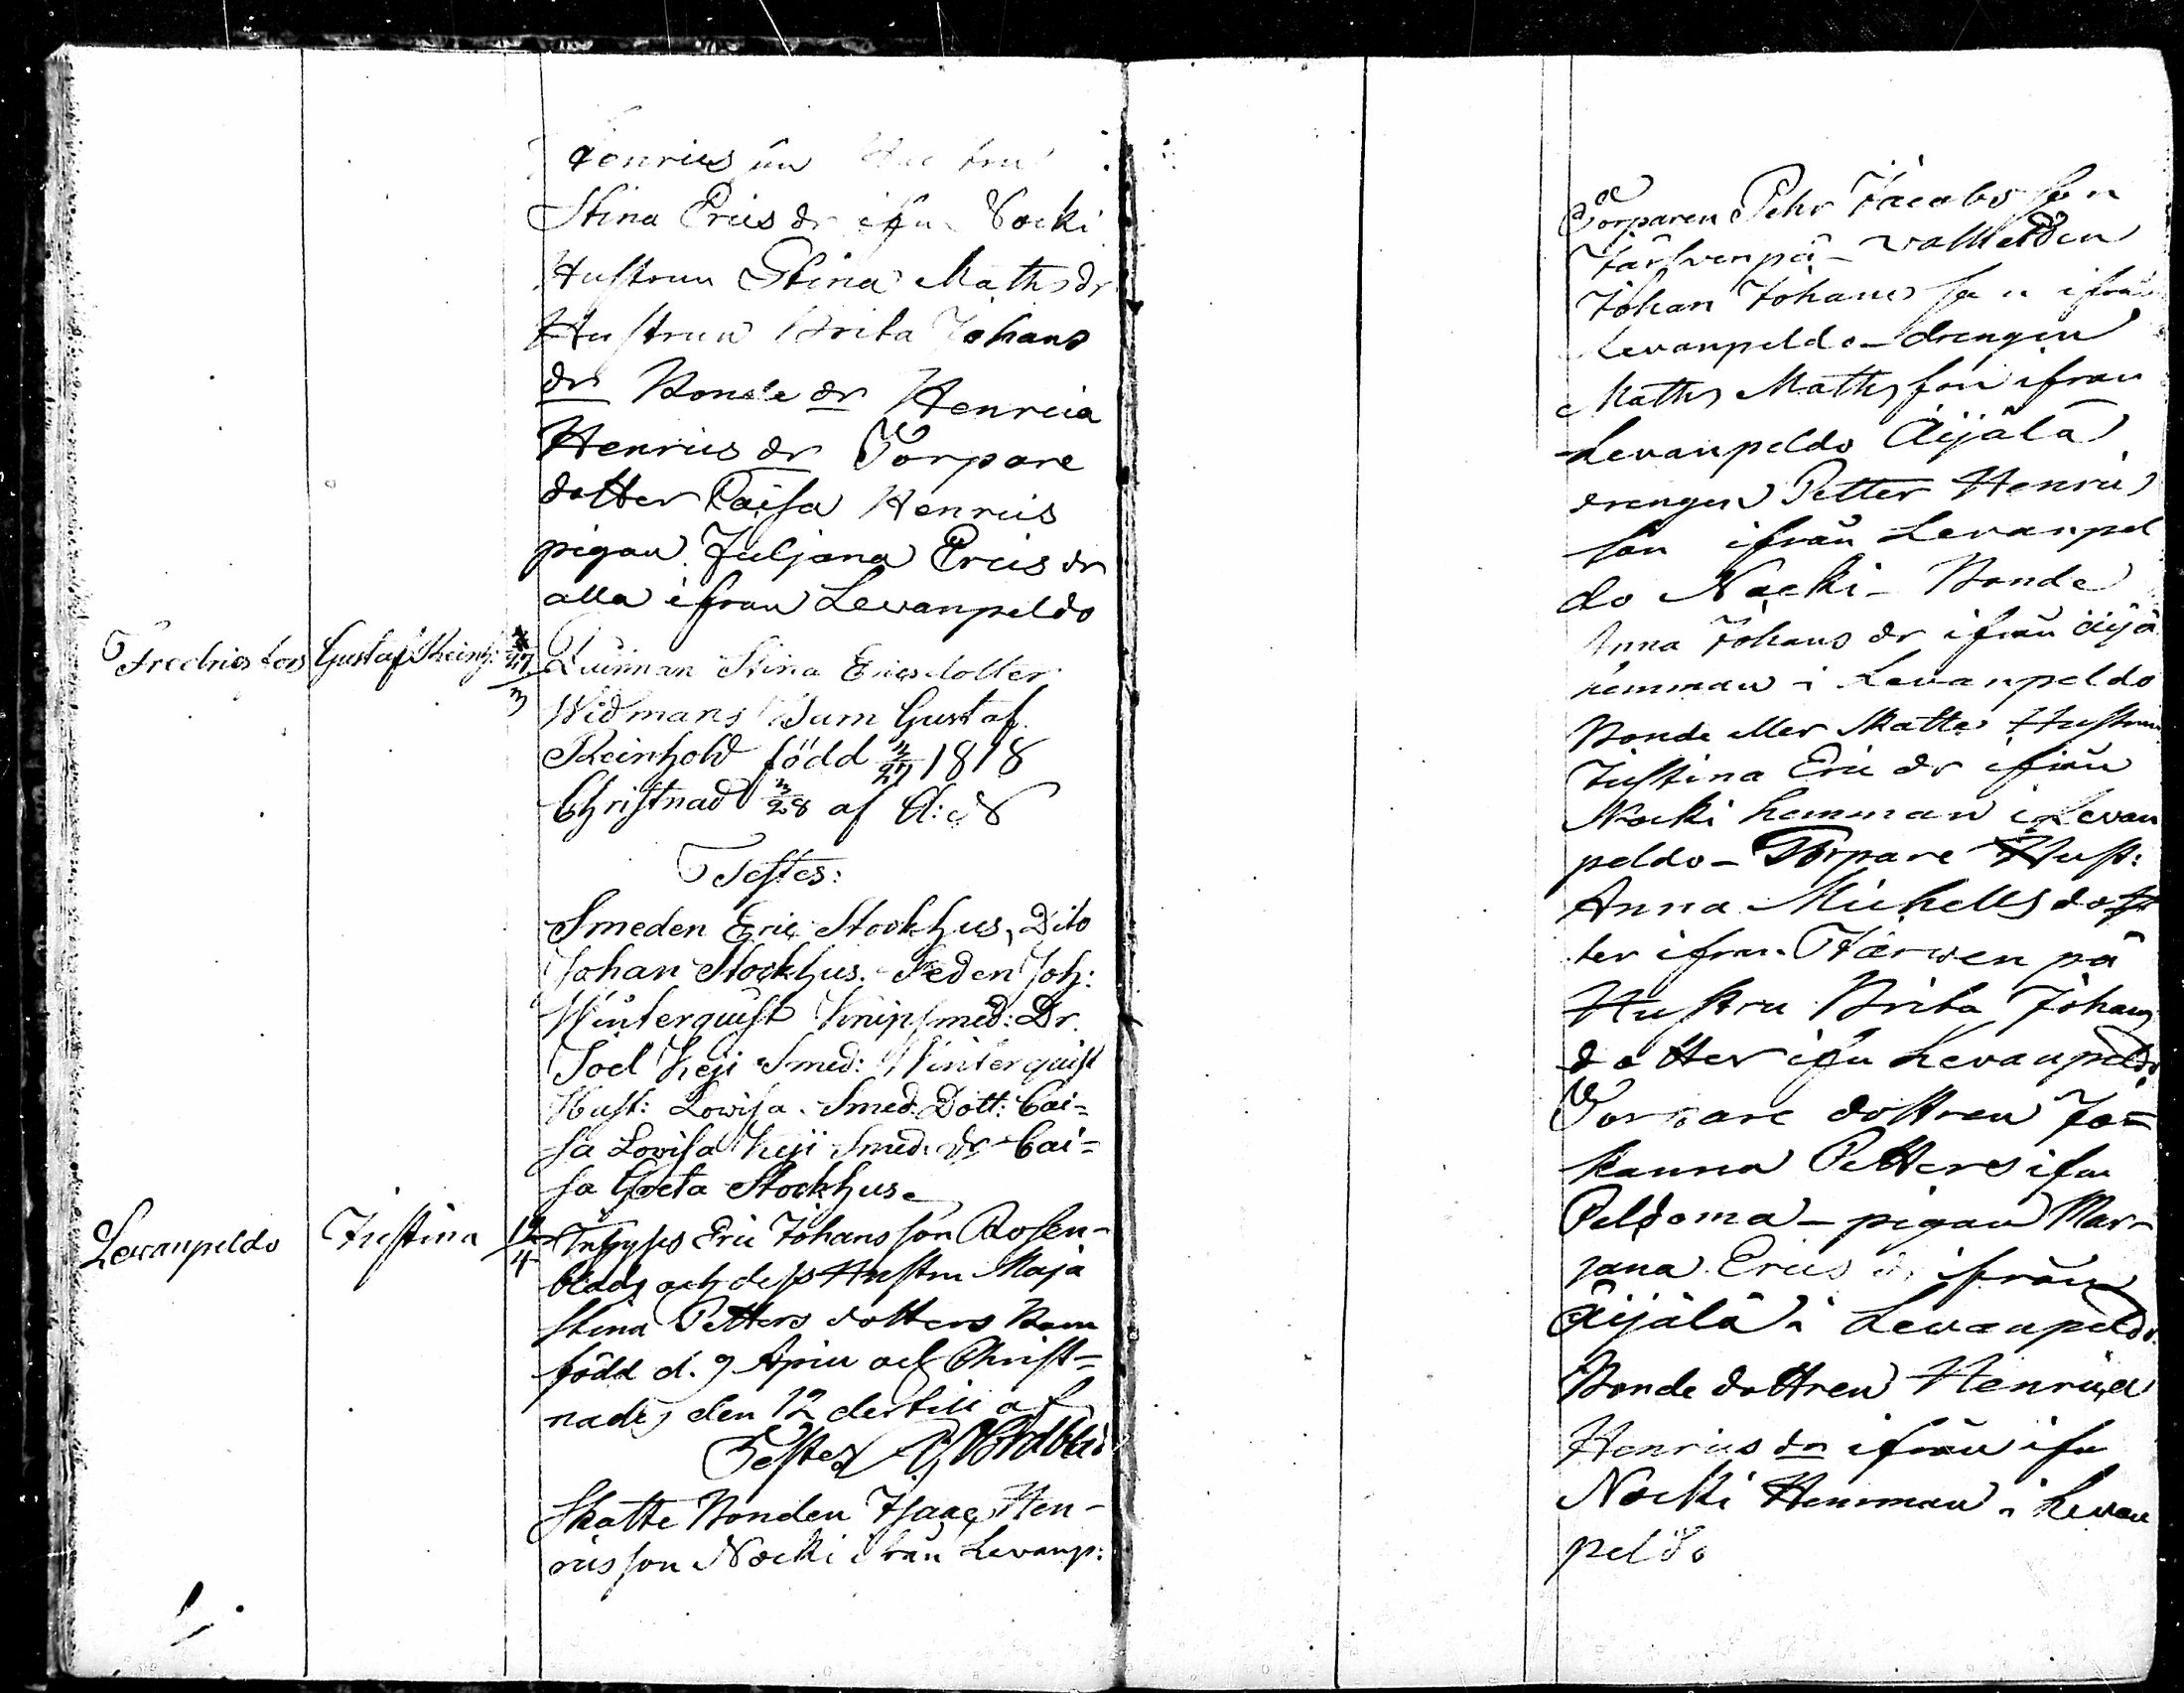 Henricsson Hustru
Stina Erics dr ifrn Nocki
Hustrun Stina Maths dr
Hustrun Brita Johans
dr Bonde dr Henrica
Henrics dr Torpare
dotter Caisa Henrics
pigan Juljana Erics dr
alla ifrån Levanpeldo
Fredricsfors Gustaf Reinh: 27/3 Quinnan Stina Ericsdotter
Widmans Barn Gustaf
Reinhold född 3/27 1818
Christnad 3/28 af A: N
Testes:
Smeden Eric Stockhus, Dito
Johan Stockhus. Joh:
Winterquist Knipsmed: Dr.
Joel Keji Smed: Winterquist
Hust: Lovisa. Smed. Dott: Cai=
sa Lovisa Keji Smed: dr Cai=
sa Greta Stockhus.
Levanpeldo Justina 12/4 Inhyses Eric Johansson Rosen-
blads och dess Hustru Maja
Stina Petters dotters Barn
född d. 9 April och Christ=
nades den 12 dertill af
Testes Nordblad
Skatte Bonden Isaac Hen-
ricsson Nocki ifrån Levanp:
Torparen Pehr Jacobsson
Järfvenpä - Vallherden
Johan Johansson ifrån
Levanpeldo - drengen
Maths Mathsson ifrån
Levanpeldo Äijälä
drengen Petter Henrics
son ifrån Levanpel
do Nocki - Bonde
Anna Johans dr ifrån Äijä
hemman i Levanpeldo
Bonde eller Skatte Hustrun
Justina Eric dr ifrån
Nocki hemman i Levan
peldo - Torpare Hust:
Anna Michells dot
ter ifrån Järwenpä
Hustru Brita Johans
dotter ifrn Levanpeldo
Torpare dottren Jo=
hanna Petters ifrn
Peldoma - pigan Mar-
jana Erics dr ifrån
Äijälä i Levanpeldo
Bonde dottren Henrica
Henrics dr ifrån ifrn
Nocki Hemman i Levan
peldo